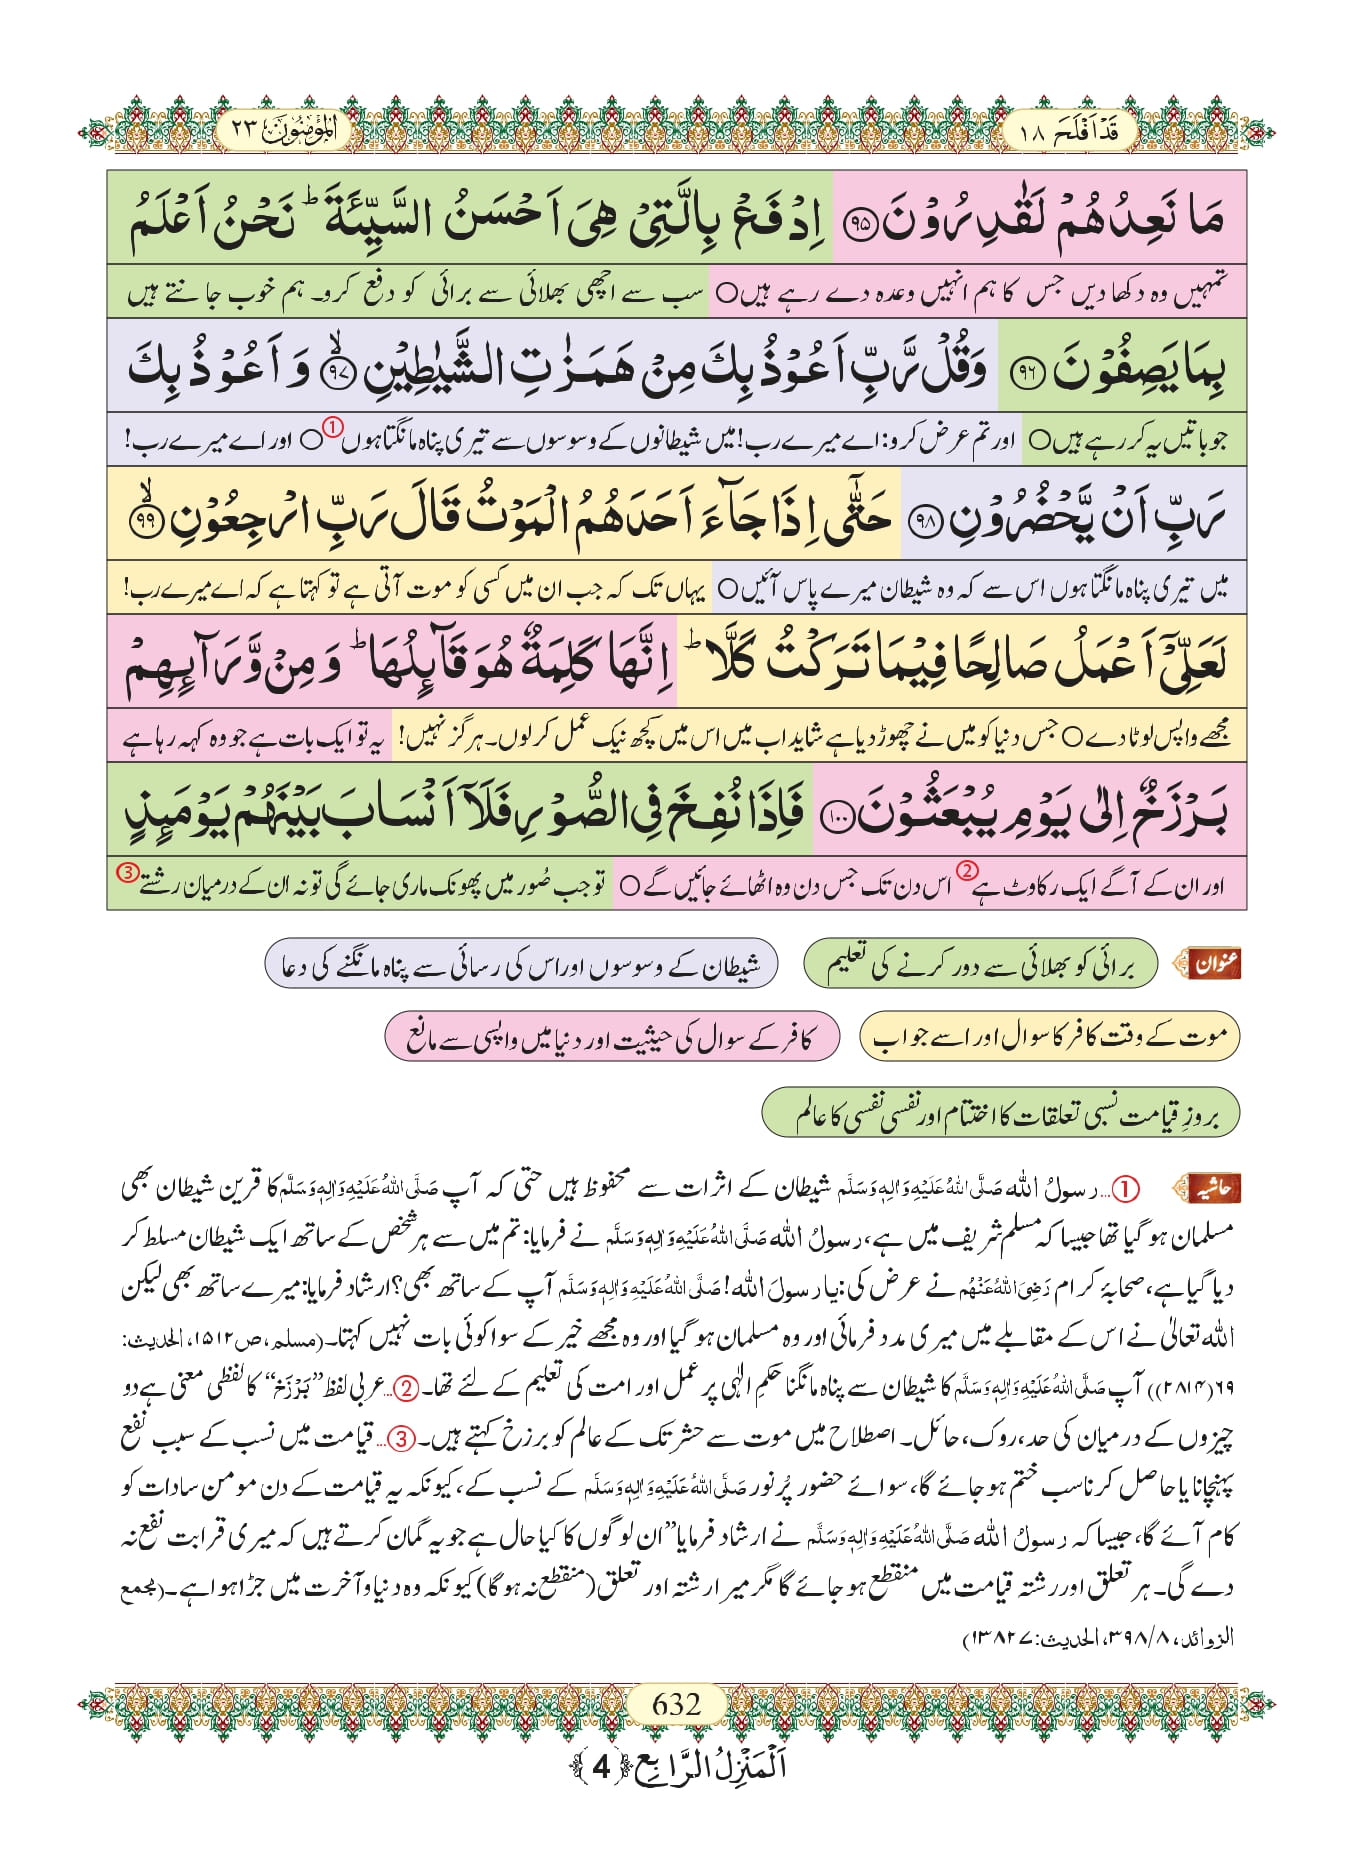 قَدْ اَفْلَحَ ١٨
الْمُؤْمِنُوْنَ ٢٣
مَا نَعِدُهُمْ لَقٰدِرُوْنَ ﴿٩٥﴾ اِدْفَعْ بِالَّتِیْ هِیَ اَحْسَنُ السَّیِّئَةَ ؕ نَحْنُ اَعْلَمُ
تمہیں وہ دکھا دیں جس کا ہم انہیں وعدہ دے رہے ہیں○ سب سے اچھی بھلائی سے برائی کو دفع کرو۔ ہم خوب جانتے ہیں
بِمَا یَصِفُوْنَ ﴿٩٦﴾ وَقُلْ رَّبِّ اَعُوْذُ بِكَ مِنْ هَمَزٰتِ الشَّیٰطِیْنِ ﴿ۙ٩٧﴾ وَ اَعُوْذُ بِكَ
جو باتیں یہ کر رہے ہیں○ اور تم عرض کرو: اے میرے رب! میں شیطانوں کے وسوسوں سے تیری پناہ مانگتا ہوں① ○ اور اے میرے رب!
رَبِّ اَنْ یَّحْضُرُوْنِ ﴿٩٨﴾ حَتّٰۤی اِذَا جَآءَ اَحَدَهُمُ الْمَوْتُ قَالَ رَبِّ ارْجِعُوْنِ ﴿ۙ٩٩﴾
میں تیری پناہ مانگتا ہوں اس سے کہ وہ شیطان میرے پاس آئیں○ یہاں تک کہ جب ان میں کسی کو موت آتی ہے تو کہتا ہے کہ اے میرے رب!
لَعَلِّیْۤ اَعْمَلُ صَالِحًا فِیْمَا تَرَكْتُ كَلَّا ؕ اِنَّهَا كَلِمَةٌ هُوَ قَآىِٕلُهَا ؕ وَ مِنْ وَّرَآىِٕهِمْ
مجھے واپس لوٹا دے○ جس دنیا کو میں نے چھوڑ دیا ہے شاید اب میں اس میں کچھ نیک عمل کر لوں۔ ہرگز نہیں! یہ تو ایک بات ہے جو وہ کہہ رہا ہے
بَرْزَخٌ اِلٰی یَوْمِ یُبْعَثُوْنَ ﴿١٠٠﴾ فَاِذَا نُفِخَ فِی الصُّوْرِ فَلَاۤ اَنْسَابَ بَیْنَهُمْ یَوْمَىِٕذٍ
اور ان کے آگے ایک رکاوٹ ہے② اس دن تک جس دن وہ اٹھائے جائیں گے○ تو جب صُور میں پھونک ماری جائے گی تو نہ ان کے درمیان رشتے③
عنوان برائی کو بھلائی سے دور کرنے کی تعلیم شیطان کے وسوسوں اور اس کی رسائی سے پناہ مانگنے کی دعا
موت کے وقت کافر کا سوال اور اسے جواب کافر کے سوال کی حیثیت اور دنیا میں واپسی سے مانع
بروزِ قیامت نسبی تعلقات کا اختتام اور نفسی نفسی کا عالم
حاشیہ ①... رسولُ اللہ صَلَّی اللہُ عَلَیْہِ وَاٰلِہٖ وَسَلَّم شیطان کے اثرات سے محفوظ ہیں حتی کہ آپ صَلَّی اللہُ عَلَیْہِ وَاٰلِہٖ وَسَلَّم کا قرین شیطان بھی
مسلمان ہو گیا تھا جیسا کہ مسلم شریف میں ہے، رسولُ اللہ صَلَّی اللہُ عَلَیْہِ وَاٰلِہٖ وَسَلَّم نے فرمایا: تم میں سے ہر شخص کے ساتھ ایک شیطان مسلط کر
دیا گیا ہے، صحابۂ کرام رَضِیَ اللہُ عَنْہُم نے عرض کی: یا رسولَ اللہ! صَلَّی اللہُ عَلَیْہِ وَاٰلِہٖ وَسَلَّم آپ کے ساتھ بھی؟ ارشاد فرمایا: میرے ساتھ بھی لیکن
اللہ تعالٰی نے اس کے مقابلے میں میری مدد فرمائی اور وہ مسلمان ہو گیا اور وہ مجھے خیر کے سوا کوئی بات نہیں کہتا۔ (مسلم، ص۱۵۱۲، الحدیث:
۶۹(۲۸۱۴)) آپ صَلَّی اللہُ عَلَیْہِ وَاٰلِہٖ وَسَلَّم کا شیطان سے پناہ مانگنا حکمِ الٰہی پر عمل اور امت کی تعلیم کے لئے تھا۔ ②... عربی لفظ ”بَرْزَخ“ کا لفظی معنی ہے دو
چیزوں کے درمیان کی حد، روک، حائل۔ اصطلاح میں موت سے حشر تک کے عالم کو برزخ کہتے ہیں۔ ③... قیامت میں نسب کے سبب نفع
پہنچانا یا حاصل کرنا سب ختم ہو جائے گا، سوائے حضور پُرنور صَلَّی اللہُ عَلَیْہِ وَاٰلِہٖ وَسَلَّم کے نسب کے، کیونکہ یہ قیامت کے دن مومن سادات کو
کام آئے گا، جیسا کہ رسولُ اللہ صَلَّی اللہُ عَلَیْہِ وَاٰلِہٖ وَسَلَّم نے ارشاد فرمایا ”ان لوگوں کا کیا حال ہے جو یہ گمان کرتے ہیں کہ میری قرابت نفع نہ
دے گی۔ ہر تعلق اور رشتہ قیامت میں منقطع ہو جائے گا مگر میرا رشتہ اور تعلق (منقطع نہ ہو گا) کیونکہ وہ دنیا و آخرت میں جڑا ہوا ہے۔ (مجمع
الزوائد، ۸/۳۹۸، الحدیث: ۱۳۸۲۷)
632
اَلْمَنْزِلُ الرَّابِع ﴿4﴾